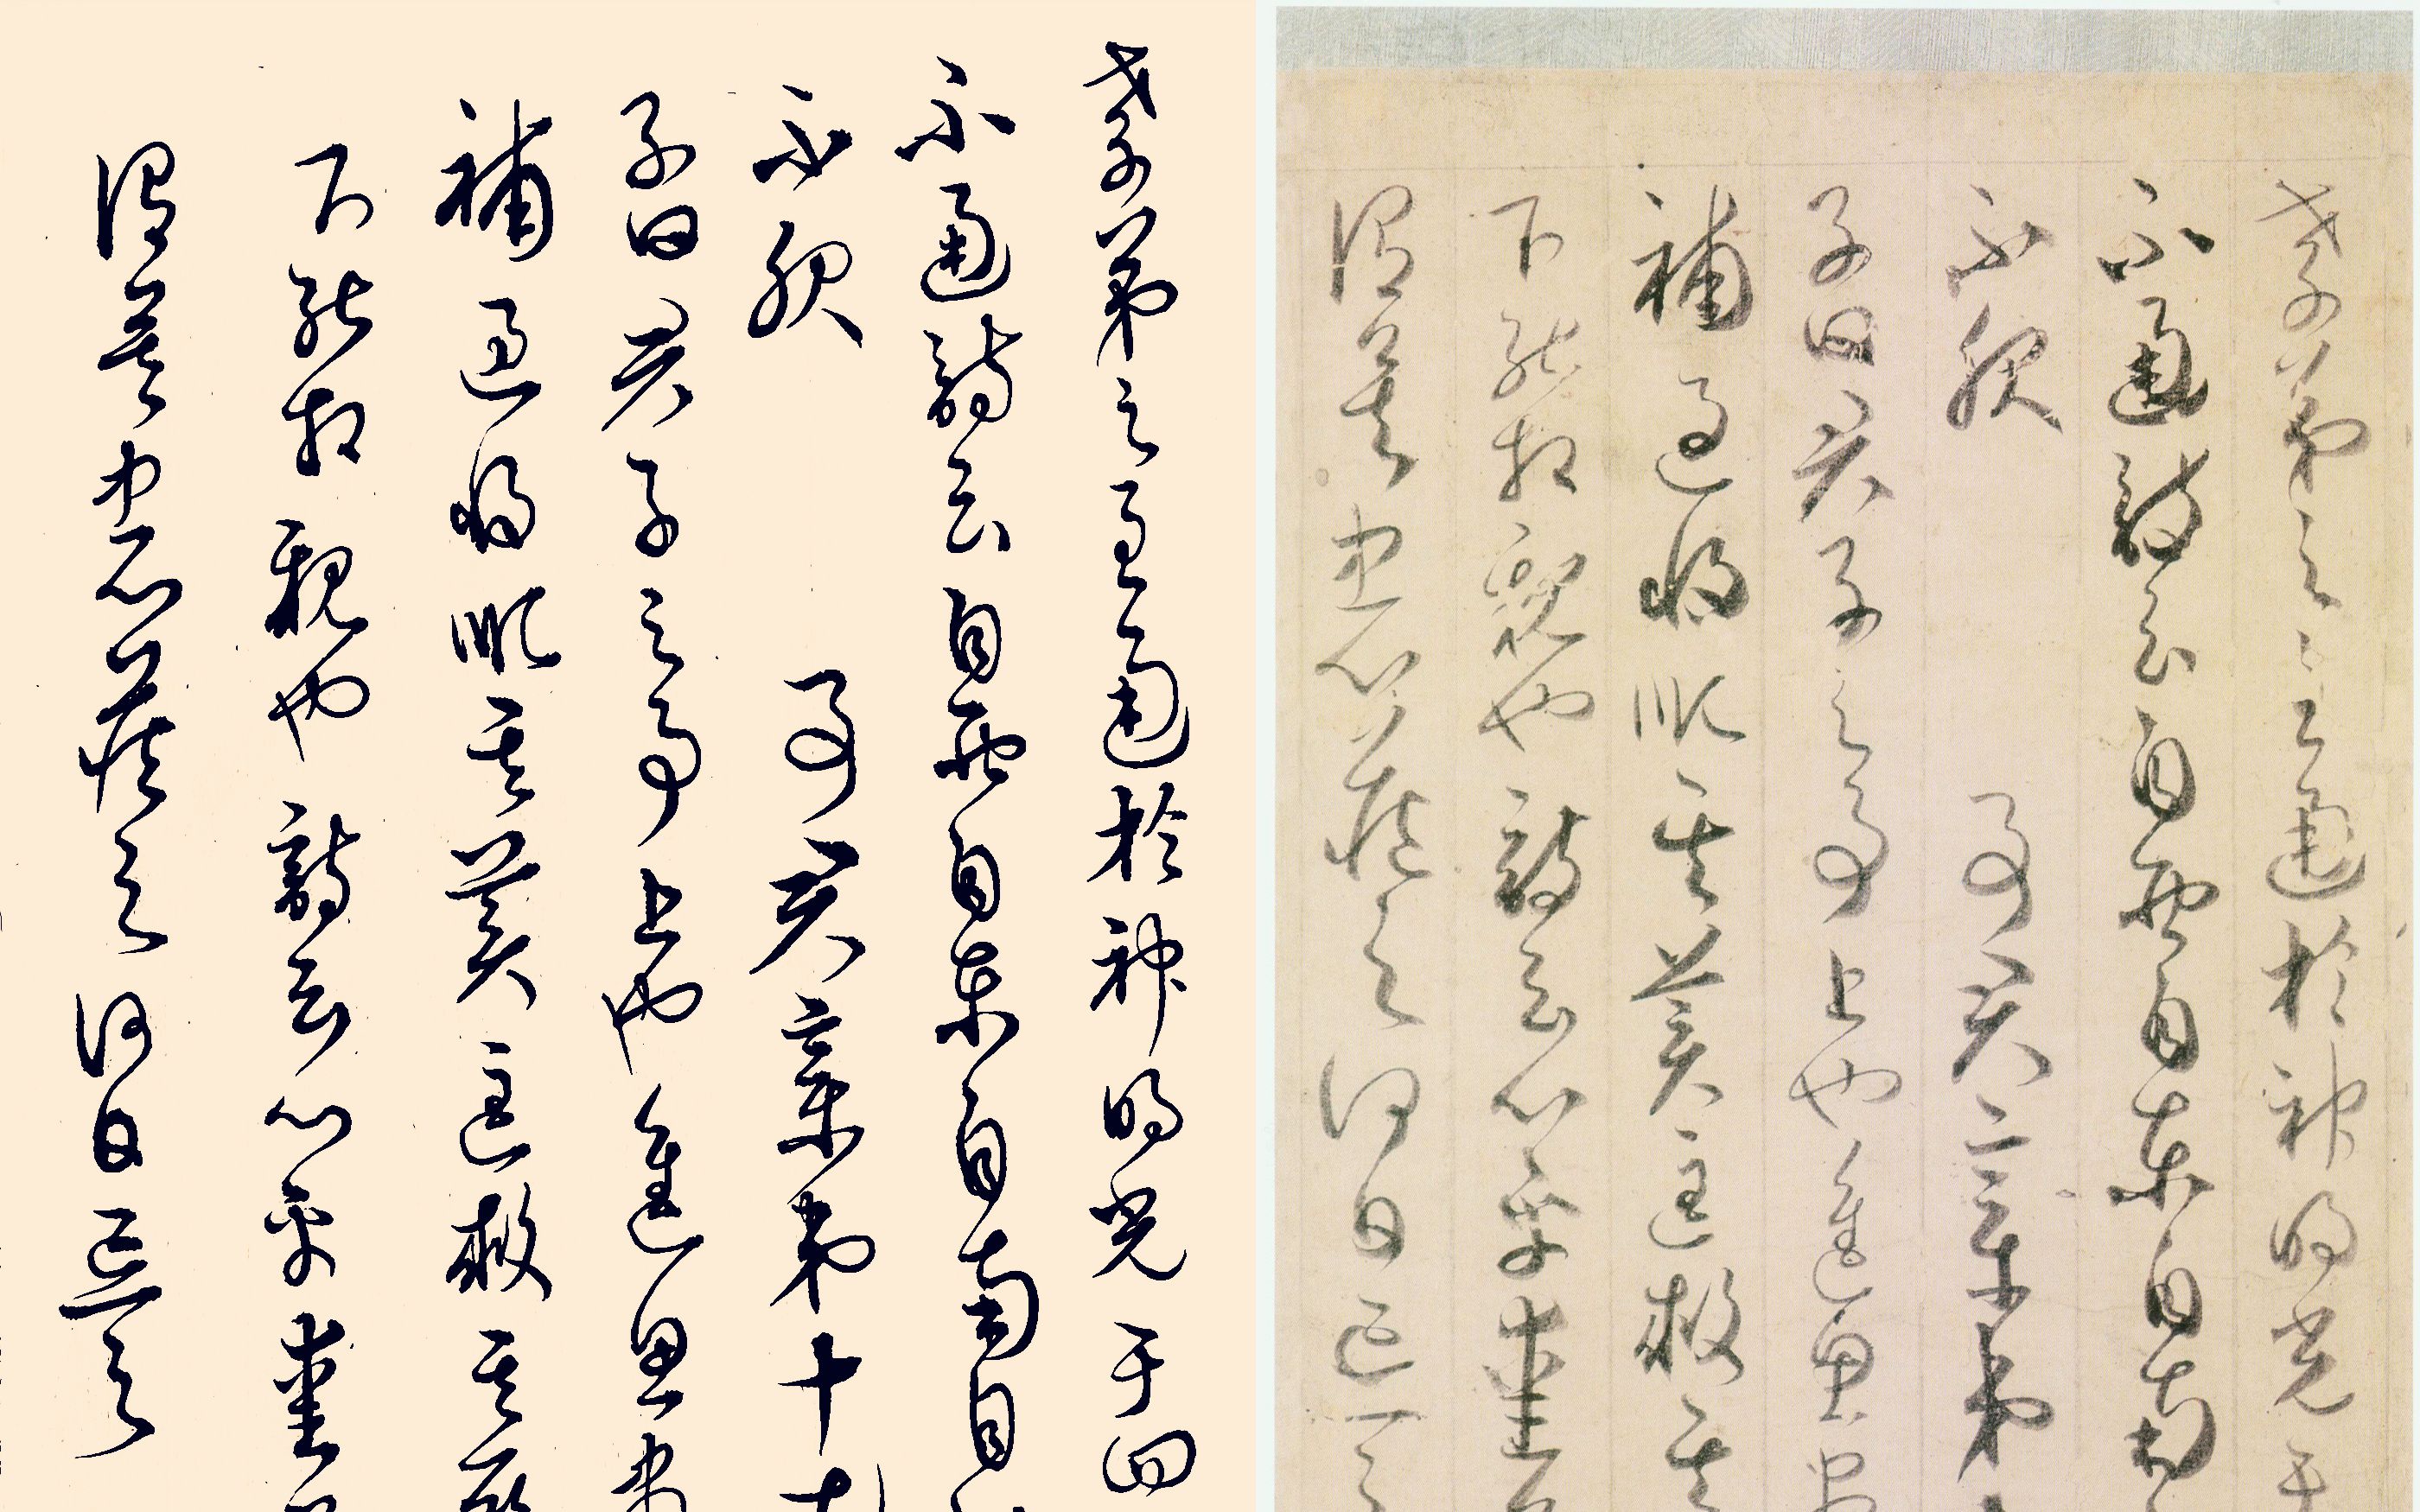 孝弟之至通於神明光于四
不通詩云自西自東自南自
不服 事君章第十
子曰君子之事上也進思盡
補過將順其美匡救其惡
下能相親也詩云心乎愛
謂矣中心藏之何日忘之
孝弟之至通於神明光于
不通詩云自西自東自南
不服 事君章第
子曰君子之事上也進思盡
補過將順其美匡救其
下能相親也詩云心乎愛
謂矣中心藏之何日忘之